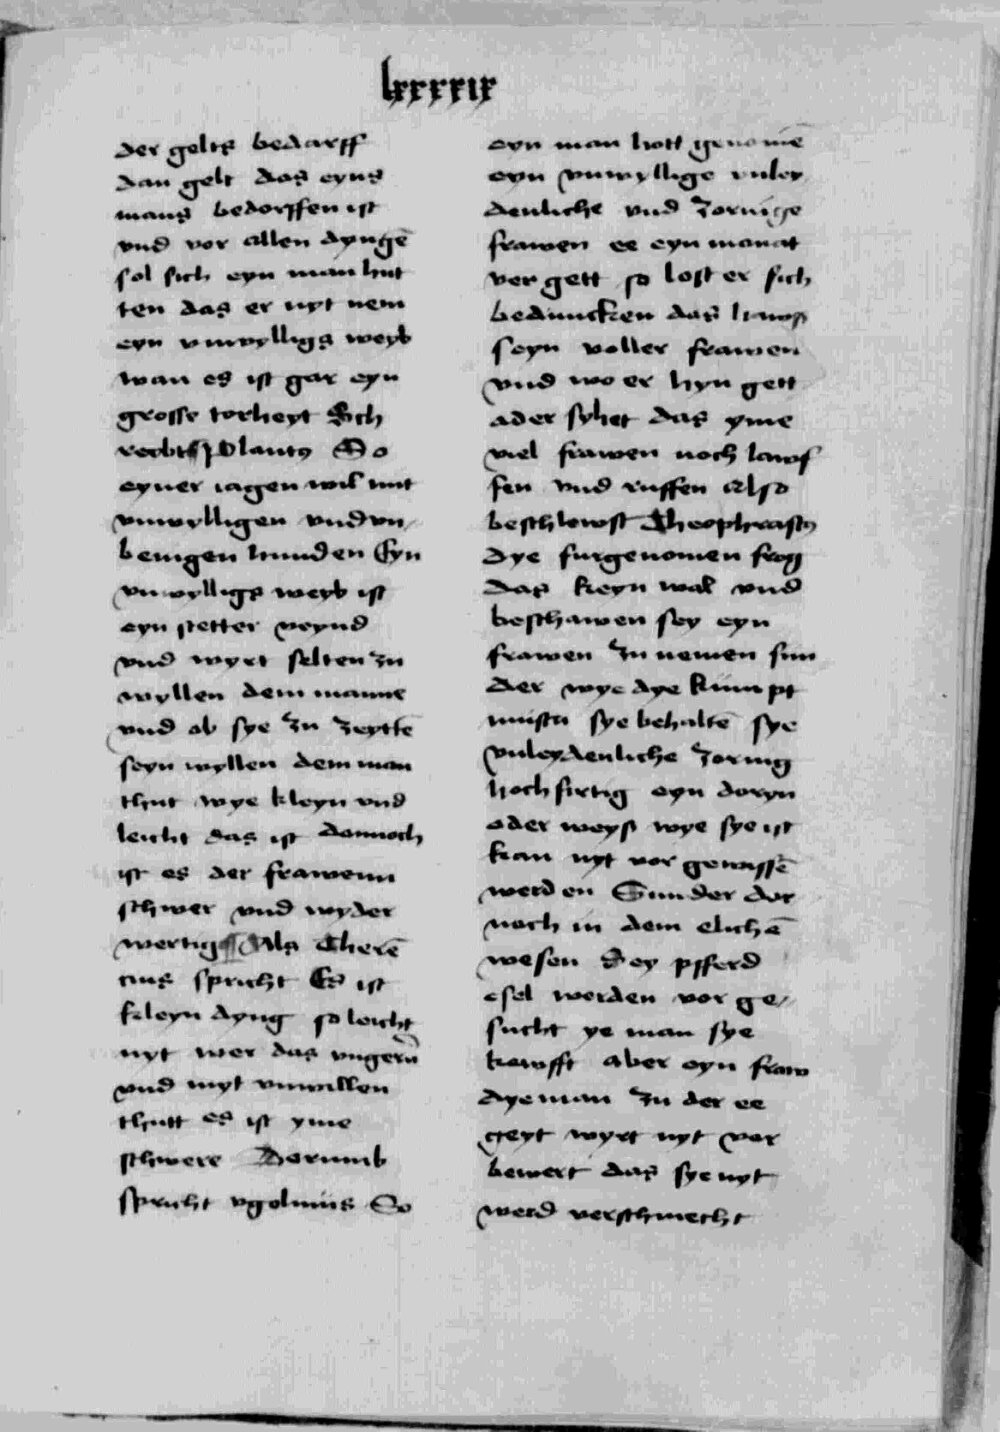 lxxxxix
der gelts bedarff
dan gelt das eyns
mans bedorffen ist
vnd vor allen dyngē
sol sich eyn man hut
ten das er nyt nem
eyn vnwylligs weyb
wan es ist gar eyn
grosse torheyt Sch
reybt Plautus So
eyner iagen wil mit
vnwylligen vnd vn
benigen hunden Eyn
vnwylligs weyb ist
eyn stetter veynd
vnd wyrt selten zu
wyllen dem manne
vnd ob sye zu zeyttē
seyn wyllen dem man
thut wye kleyn vnd
leicht das ist dannoch
ist es der frawenn
schwer vnd wyder
wertig Als Therē
cius spricht Es ist
kleyn dyng so leicht
nyt wer das vngern
vnd myt vnwillen
thutt es ist yme
schwere Dorumb
spricht vgolinus So
eyn man hott genomē
eyn vnwyllige vnley
denliche vnd zornige
frawen ee eyn monat
ver gett so lost er sich
beduncken das haws
seyn voller frawen
vnd wo er hyn gett
ader syhet das yme
viel frawen noch lawf
fen vnd ruffen Also
beschlowst Theophrastus
dye furgenomen frog
das keyn wal vnd
beschawen sey eyn
frawen zu nemen sun
der wye dye kumpt
mustu sye behaltē sye
vnleydenliche zornig
hochfertig eyn doryn
oder weys wye sye ist
kan nyt vor gewissē
werden Sunder dar
noch in dem elichē
wesen Dey pfferd
esel werden vor ge
sucht ye man sye
kawfft aber eyn fraw
dye man zu der ee
geyt wyrt nyt vor
bewert das sye nyt
werd verschmecht